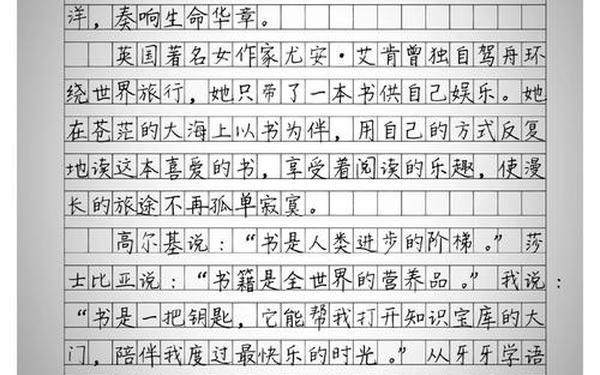 洋，奏响生命华章。
英国著名女作家尤安·艾肯曾独自驾舟环
绕世界旅行，她只带了一本书供自己娱乐。她
在苍茫的大海上以书为伴，用自己的方式反复
地读这本喜爱的书，享受着阅读的乐趣，使漫
长的旅途不再孤单寂寞。
高尔基说：“书是人类进步的阶梯。”莎
士比亚说：“书籍是全世界的营养品。”我说：
“书是一把钥匙，它能帮我打开知识宝库的大
门，陪伴我度过最快乐的时光。”从牙牙学语